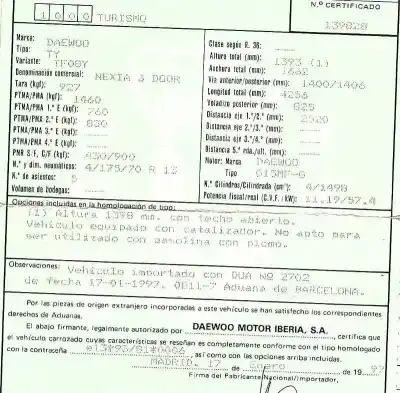 N.º CERTIFICADO
1000 TURISMO
139828
Marca: DAEWOO
Clase según R. 36:
Tipo: TY
Altura total (mm): 1393 (1)
Variante: TF08Y
Anchura total (mm): 1662
Denominación comercial: NEXIA 3 DOOR
Vía anterior/posterior (mm): 1400/1406
Tara (kgf): 927
Longitud total (mm): 4256
PTMA/PMA (kgf): 1460
Voladizo posterior (mm): 825
PTMA/PMA 1.º E (kgf): 760
Distancia eje 1.º/2.º (mm): 2520
PTMA/PMA 2.º E (kgf): 830
Distancia eje 2.º/3.º (mm):
PTMA/PMA 3.º E (kgf):
Distancia eje 3.º/4.º (mm):
PTMA/PMA 4.º E (kgf):
Distancia 5.ª rda./ult. (mm):
PMR S/F, C/F (kgf): 430/900
Motor: Marca DAEWOO
N.º y dim. neumáticos: 4/175/70 R 13
Tipo G15MF-G
N.º de asientos: 5
N.º Cilindros/Cilindrada (cm³): 4/1498
Volumen de bodegas:
Potencia fiscal/real (C.V.F./kW): 11.19/57.4
Opciones incluidas en la homologación de tipo:
(1) Altura 1398 mm. con techo abierto.
Vehículo equipado con catalizador. No apto para
ser utilizado con gasolina con plomo.
Observaciones: Vehículo importado con DUA Nº 2702
de fecha 17-01-1997. 0811-7 Aduana de BARCELONA.
Por las piezas de origen extranjero incorporadas a este vehículo se han satisfecho los correspondientes
derechos de Aduanas.
El abajo firmante, legalmente autorizado por DAEWOO MOTOR IBERIA, S.A., certifica que
el vehículo carrozado cuyas características se reseñan es completamente conforme con el tipo homologado
con la contraseña e13*93/81*0006, así como con las opciones arriba incluidas.
MADRID, 17 de enero de 19 97
Firma del Fabricante Nacional/Importador,